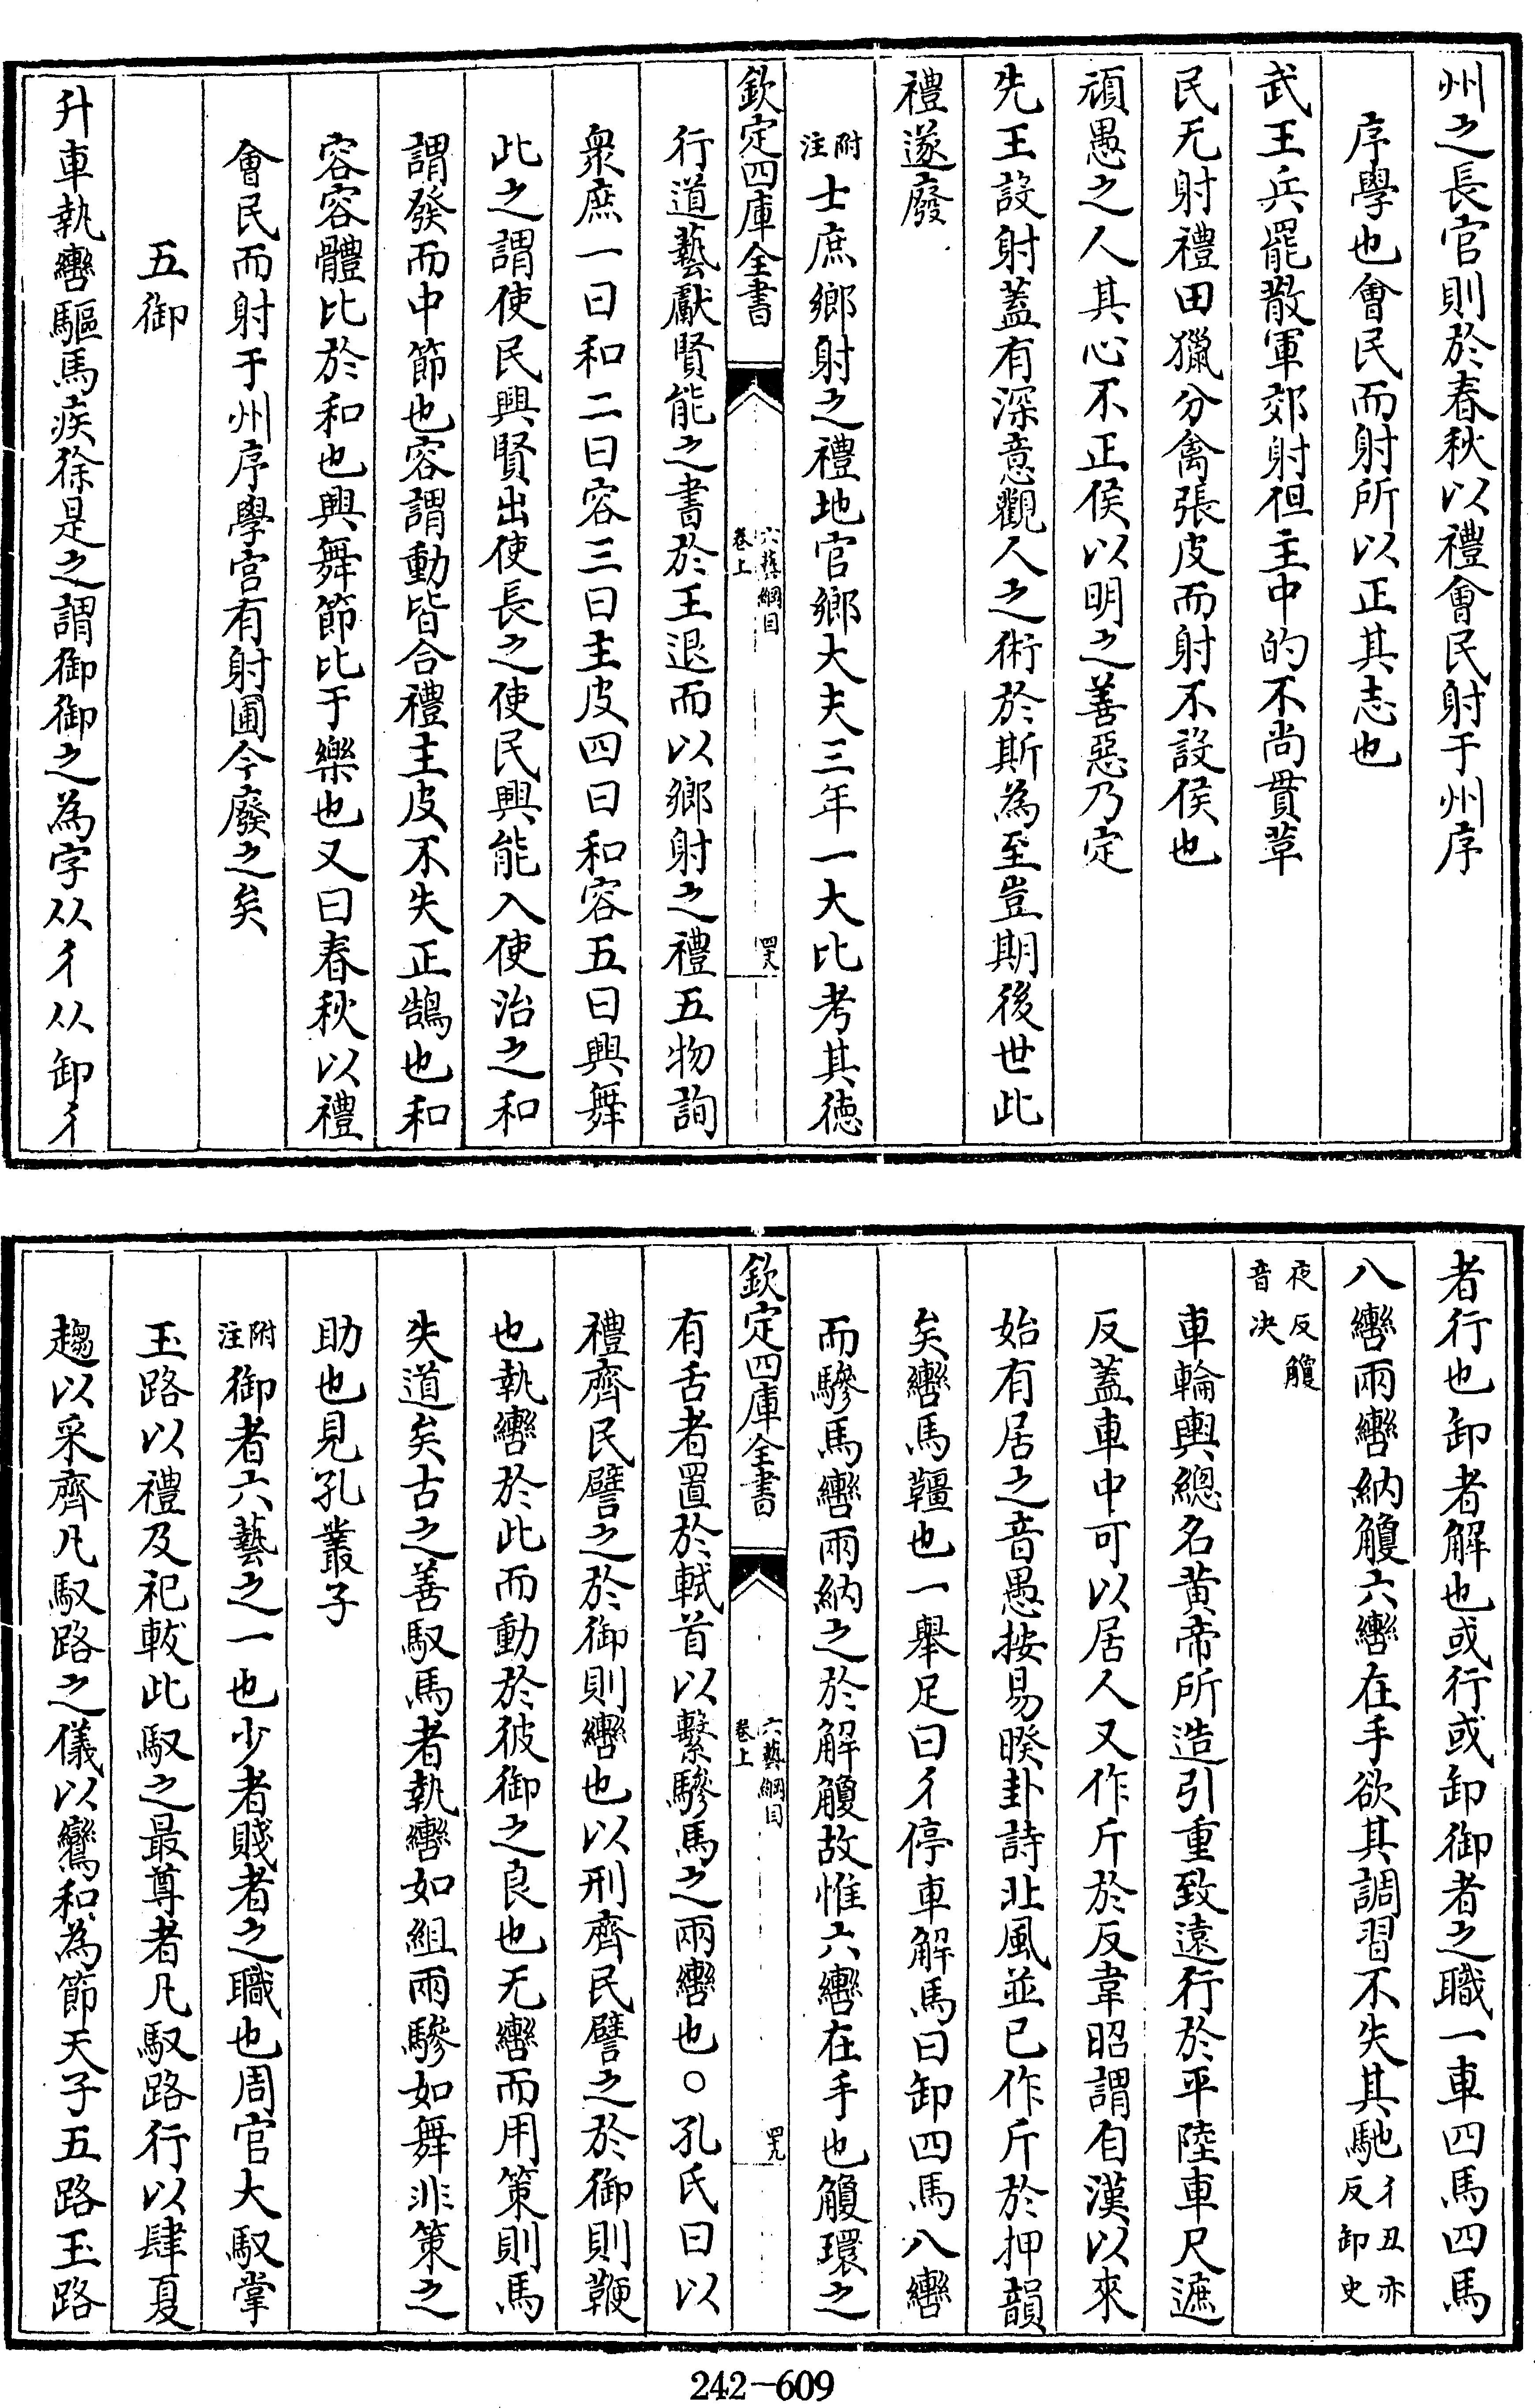 州之長官則於春秋以禮會民射于州序
序學也會民而射所以正其志也
武王兵罷散軍郊射但主中的不尚貫革
民无射禮田獵分禽張皮而射不設侯也
頑愚之人其心不正侯以明之善惡乃定
先王設射蓋有深意觀人之術於斯為至豈期後世此
禮遂廢
附注士庶鄉射之禮地官鄉大夫三年一大比考其徳
欽定四庫全書
六藝綱目
卷上
四大
行道藝獻賢能之書於王退而以鄉射之禮五物詢
衆庶一曰和二曰容三曰主皮四曰和容五曰興舞
此之謂使民興賢出使長之使民興能入使治之和
謂發而中節也容謂動皆合禮主皮不失正鵠也和
容容體比於和也興舞節比于樂也又曰春秋以禮
會民而射于州序學宫有射圃今廢之矣
五御
升車執轡驅馬疾徐是之謂御御之為字从彳从卸彳
者行也卸者解也或行或卸御者之職一車四馬四馬
八轡兩轡納觼六轡在手欲其調習不失其馳彳丑亦反卸史
夜反觼音决
車輪輿總名黄帝所造引重致遠行於平陸車尺遮
反蓋車中可以居人又作斤於反韋昭謂自漢以來
始有居之音愚按易暌卦詩北風並已作斤於押韻
矣轡馬韁也一舉足曰彳停車解馬曰卸四馬八轡
而驂馬轡兩納之於解觼故惟六轡在手也觼環之
欽定四庫全書
六藝綱目
卷上
四九
有舌者置於軾首以繫驂馬之兩轡也○孔氏曰以
禮齊民譬之於御則轡也以刑齊民譬之於御則鞭
也執轡於此而動於彼御之良也无轡而用策則馬
失道矣古之善馭馬者執轡如組兩驂如舞非策之
助也見孔叢子
附注御者六藝之一也少者賤者之職也周官大馭掌
玉路以禮及祀軷此馭之最尊者凡馭路行以肆夏
趨以采齊凡馭路之儀以鸞和為節天子五路玉路
242-609